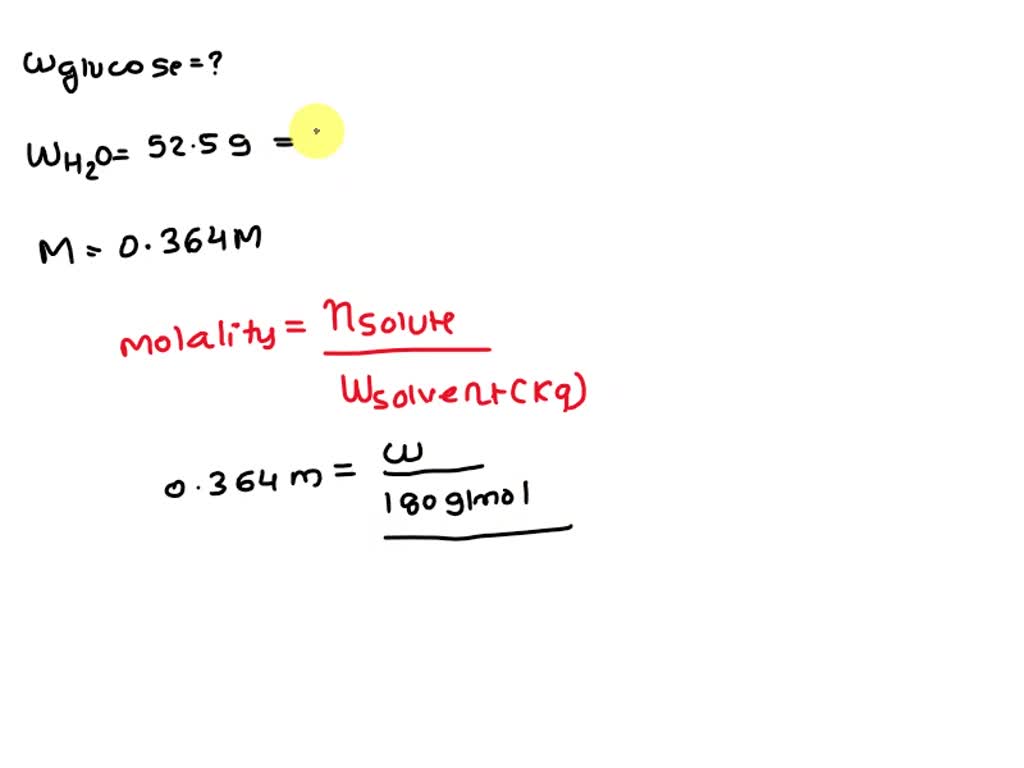 wglucose=?
WH2O= 52.5 g =
M = 0.364M
molality = nsolute
Wsolvent(Kg)
0.364 m = w
180 g/mol